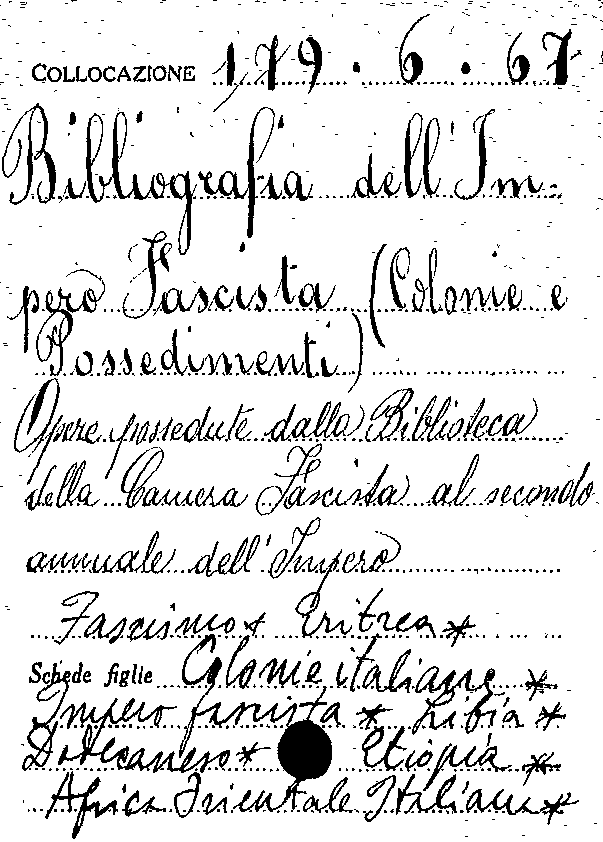 COLLOCAZIONE 179.6.67
Bibliografia dell'Im-
pero Fascista (Colonie e
Possedimenti)
Opere possedute dalla Biblioteca
della Camera Fascista al secondo
annuale dell'Impero
Fascismo * Eritrea *
Schede figlie Colonie italiane *
Impero fascista * Libia *
Dodecaneso * Etiopia *
Africa Orientale Italiana *